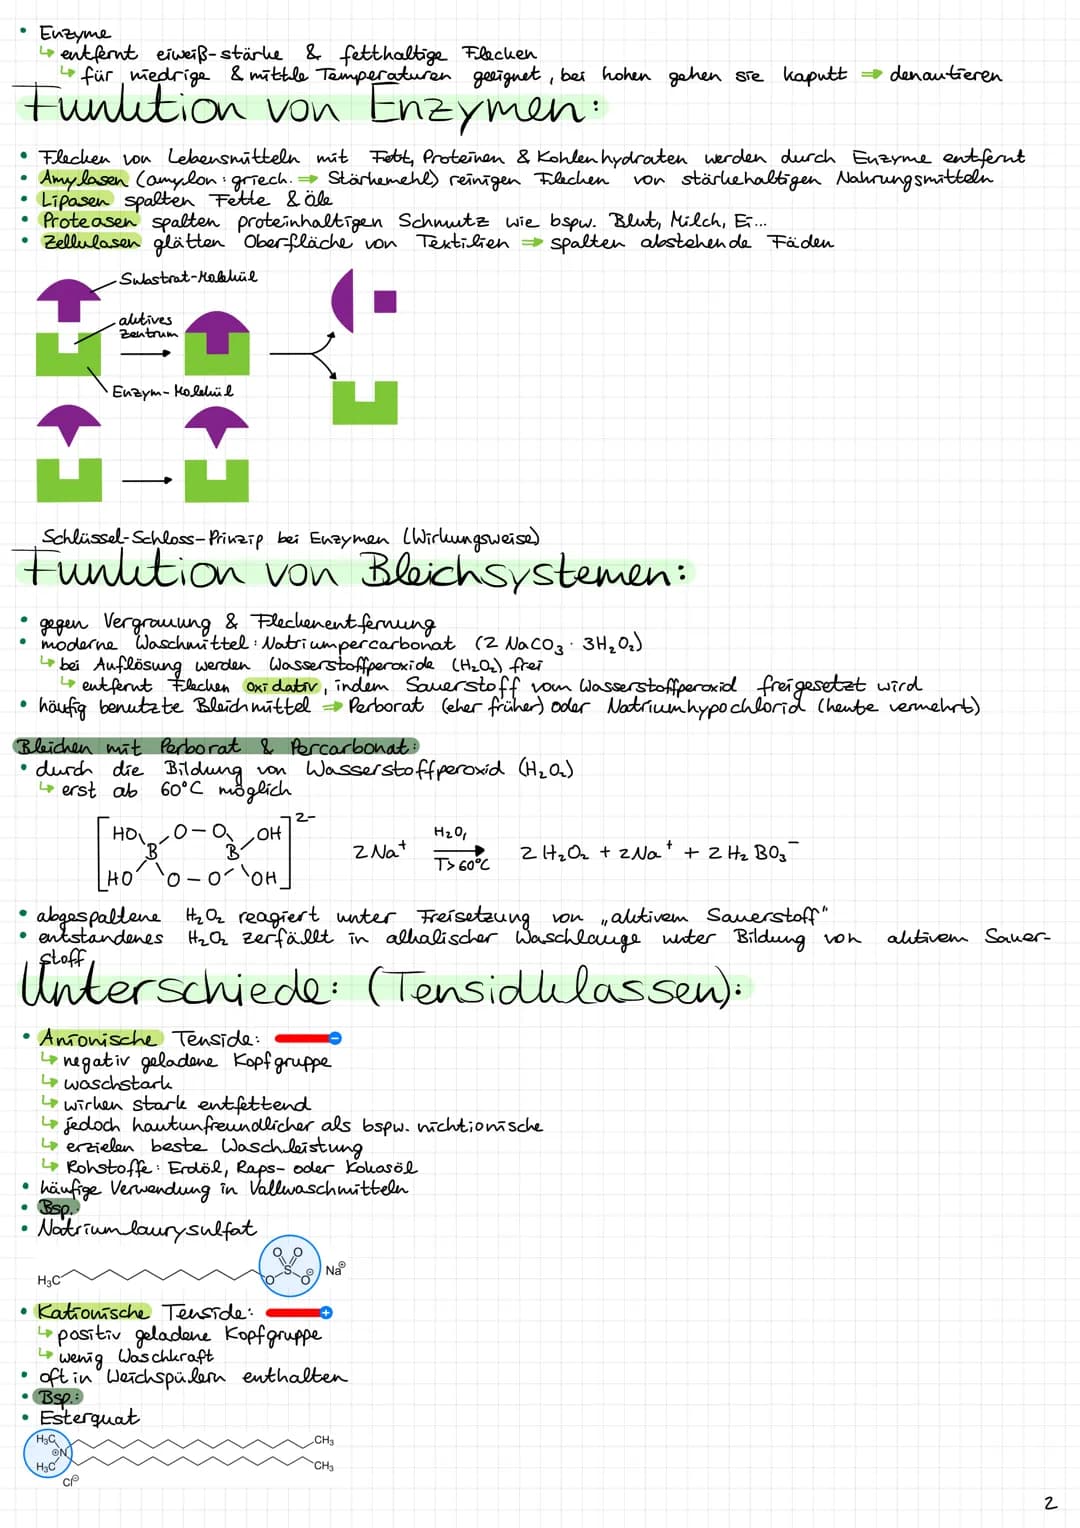 • Enzyme
↳ entfernt eiweiß-stärke & fetthaltige Flecken
↳ für niedrige & mittle Temperaturen geeignet, bei hohen gehen sie kaputt ⇒ denautieren
Funktion von Enzymen:
• Flecken von Lebensmitteln mit Fett, Proteinen & Kohlenhydraten werden durch Enzyme entfernt
• Amylasen (amylon: griech. ⇒ Stärkemehl) reinigen Flecken von stärkehaltigen Nahrungsmitteln
• Lipasen spalten Fette & öle
• Proteasen spalten proteinhaltigen Schmutz wie bspw. Blut, Milch, Ei...
• Zellulasen glätten Oberfläche von Textilien ⇒ spalten abstehende Fäden
Substrat-Molekül
aktives
Zentrum
Enzym-Molekül
Schlüssel-Schloss-Prinzip bei Enzymen (Wirkungsweise)
Funktion von Bleichsystemen:
• gegen Vergrauung & Fleckenentfernung
• moderne Waschmittel: Natriumpercarbonat (2 NaCO₃ · 3H₂O₂)
↳ bei Auflösung werden Wasserstoffperoxide (H₂O₂) frei
↳ entfernt Flecken oxidativ, indem Sauerstoff vom Wasserstoffperoxid freigesetzt wird
• häufig benutzte Bleichmittel ⇒ Perborat (eher früher) oder Natriumhypochlorid (heute vermehrt)
Bleichen mit Perborat & Percarbonat:
• durch die Bildung von Wasserstoffperoxid (H₂O₂)
↳ erst ab 60°C möglich
2-
HO O-O OH
B B
HO O-O OH
2 Na⁺
H₂O,
T>60°C
2 H₂O₂ + 2Na⁺ + 2 H₂BO₃⁻
• abgespaltene H₂O₂ reagiert unter Freisetzung von „aktivem Sauerstoff"
• entstandenes H₂O₂ zerfällt in alkalischer Waschlauge unter Bildung von aktivem Sauer-
stoff
Unterschiede: (Tensidklassen):
• Anionische Tenside: −
↳ negativ geladene Kopfgruppe
↳ waschstark
↳ wirken stark entfettend
↳ jedoch hautunfreundlicher als bspw. nichtionische
↳ erzielen beste Waschleistung
↳ Rohstoffe: Erdöl, Raps- oder Kokosöl
• häufige Verwendung in Vollwaschmitteln
• Bsp.:
• Natriumlaurysulfat
O O
H₃C O S O⊖ Na⊕
• Kationische Tenside: +
↳ positiv geladene Kopfgruppe
↳ wenig Waschkraft
• oft in Weichspülern enthalten
• Bsp.:
• Esterquat
H₃C CH₃
⊕N
H₃C CH₃
Cl⊖
2